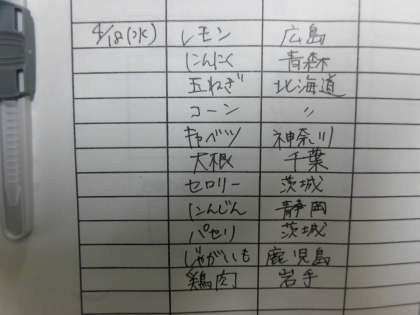 4/18(水) レモン 広島
にんにく 青森
玉ねぎ 北海道
コーン 〃
キャベツ 神奈川
大根 千葉
セロリー 茨城
にんじん 静岡
パセリ 茨城
じゃがいも 鹿児島
鶏肉 岩手